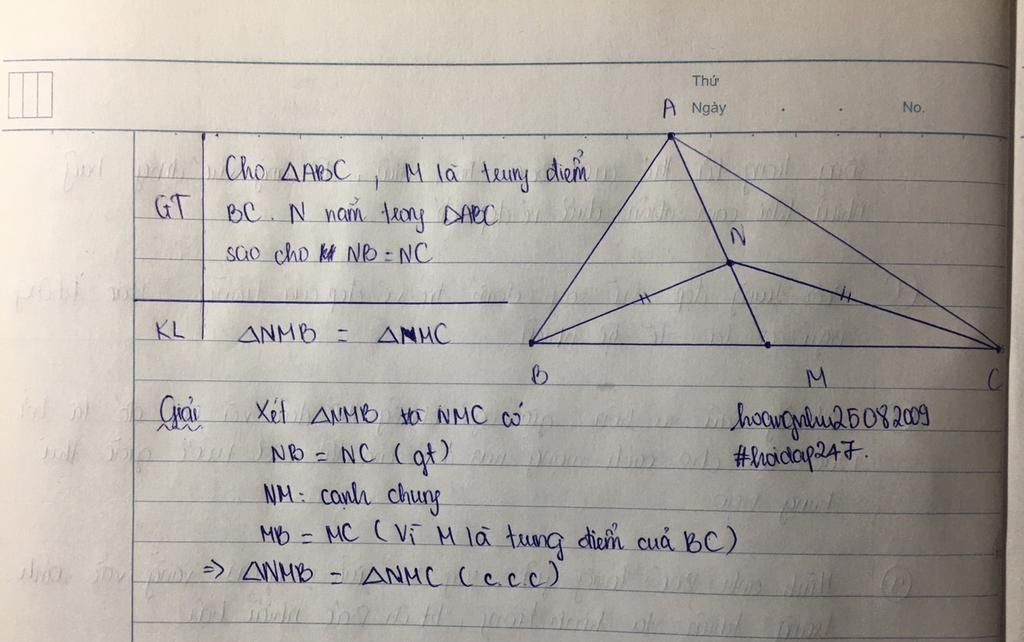 Thứ
Ngày . . No.
A
GT Cho △ABC, M là trung điểm
BC. N nằm trong △ABC
sao cho NB = NC
N
KL △NMB = △NMC
B M C
Giải Xét △NMB và NMC có
hoangnhu25082009
NB = NC (gt)
#hoidap247.
NM: cạnh chung
MB = MC (Vì M là trung điểm của BC)
=> △NMB = △NMC (c.c.c)